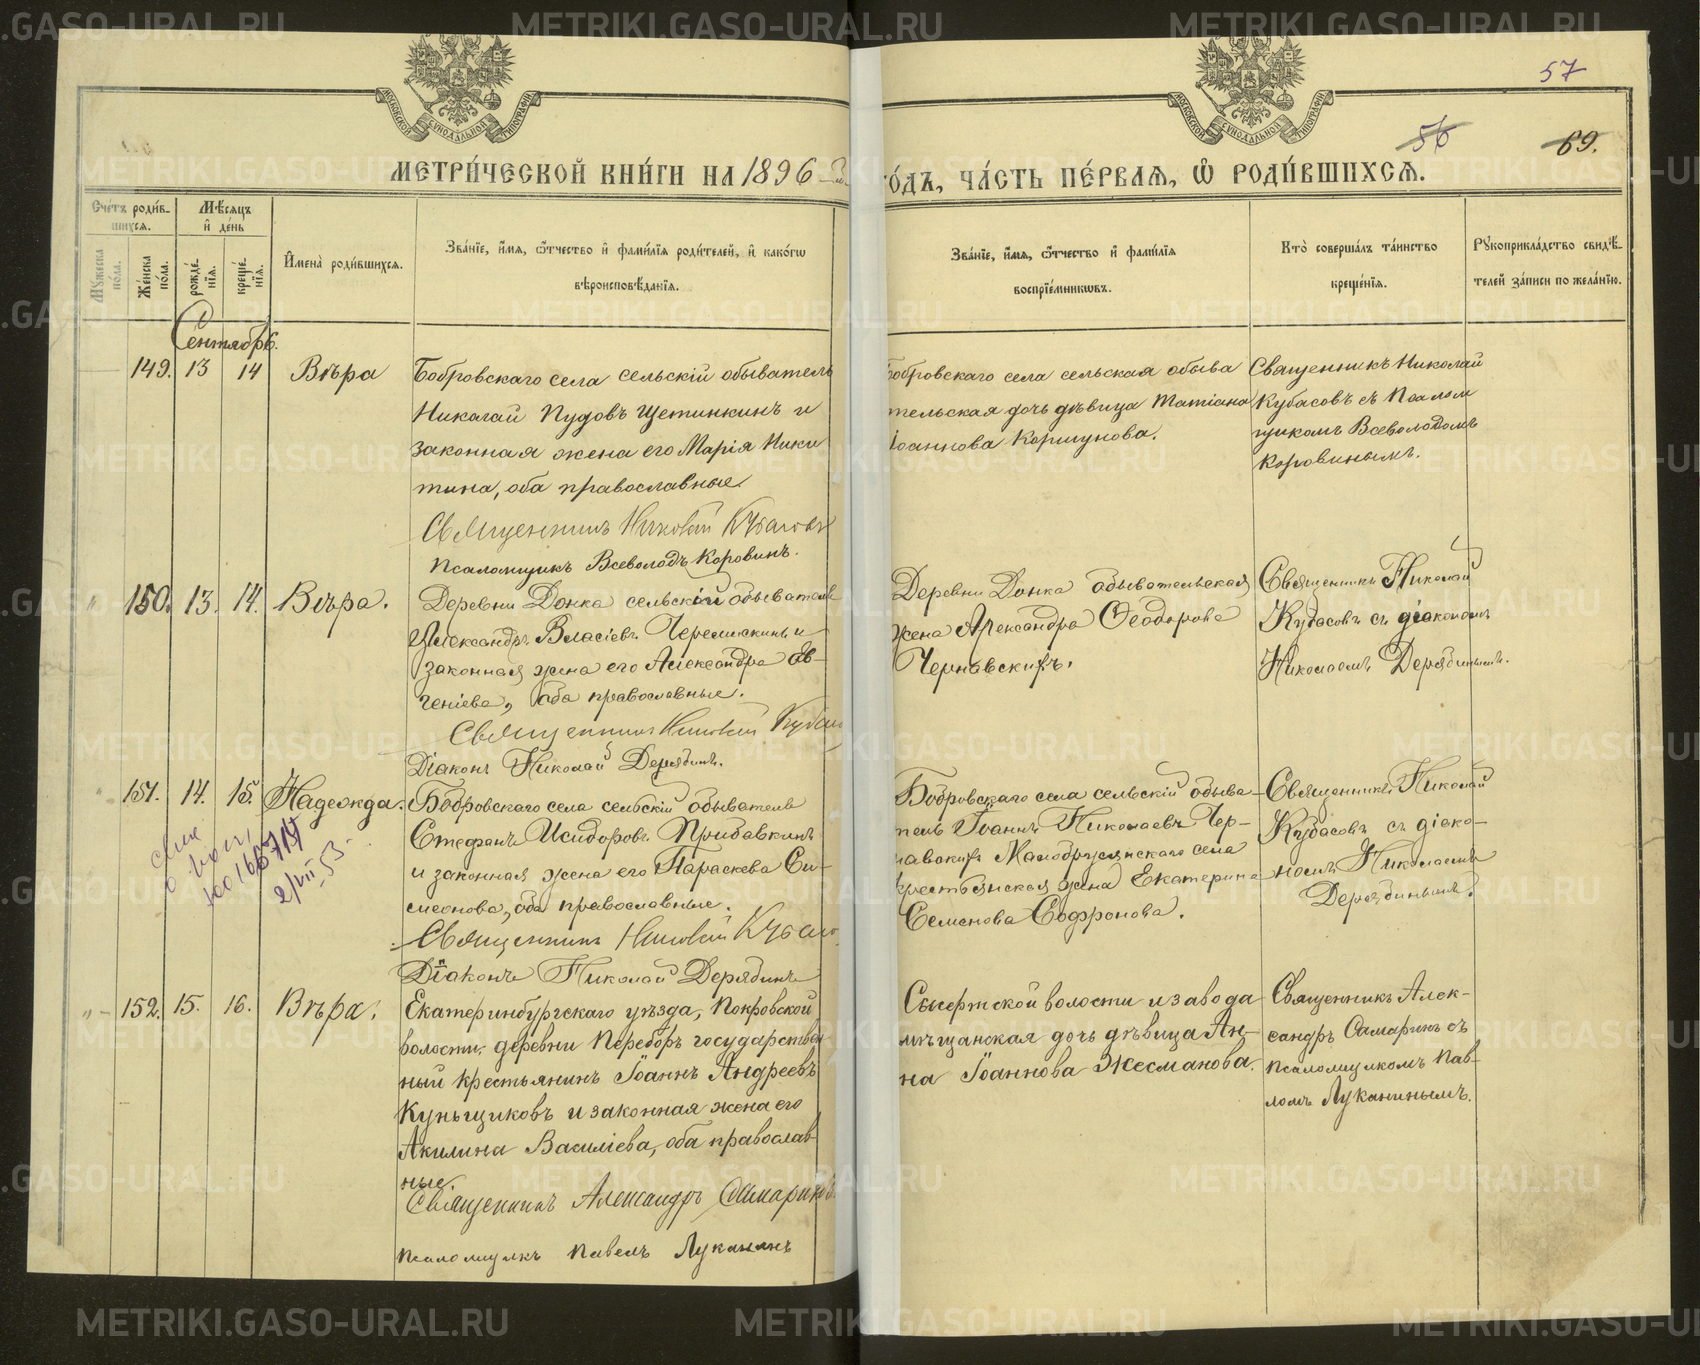 57
56
89.
МЕТРИ́ЧЕСКОЙ КНИ́ГИ НА 1896 й
ГО́ДЪ, ЧА́СТЬ ПЕ́РВАЯ, Ѽ РОДИ́ВШИХСЯ.
Сче́тъ роди́в-
шихся.
Му́жеска по́ла.
Же́нска по́ла.
Мѣ́сяцъ
и́ де́нь
рожде́нїя.
креще́нїя.
И҆мена̀ роди́вшихся.
Зва́нїе, и҆́мя, ѻ҆́тчество и҆ фами́лїя роди́телей, и҆ како́гѡ
вѣроисповѣ́данїя.
Зва́нїе, и҆́мя, ѻ҆́тчество и҆ фами́лїя
воспрїе́мникѡвъ.
Кто̀ соверша́лъ та́инство
креще́нїя.
Рꙋкоприкла́дство свидѣ́-
телей за́писи по жела́нїю.
Сентябрь.
149. 13 14 Вѣра
Бобровскаго села сельскій обыватель
Николай Пудовъ Щетинкинъ и
законная жена его Марія Ники
тина, оба православные
Священникъ Николай Кубасовъ
Псаломщикъ Всеволодъ Коровинъ.
Бобровскаго села сельская обыва
тельская дочь дѣвица Татіана
Іоаннова Коршунова.
Священникъ Николай
Кубасовъ съ Псалом
щикомъ Всеволодомъ
Коровинымъ.
" 150. 13. 14. Вѣра.
Деревни Донка сельскій обыватель
Александръ Власіевъ Черемискинъ и
законная жена его Александра Ев-
геніева, оба православные.
Священникъ Николай Кубасо
Діаконъ Николай Дерябинъ.
Деревни Донка обывательская
жена Александра Ѳеодорова
Чернавскихъ.
Священникъ Николай
Кубасовъ съ діакономъ
Николаемъ Дерябинымъ.
" 151. 14. 15. Надежда.
2/VII 53
Бобровскаго села сельскій обыватель
Стефанъ Исидоровъ Прибавкинъ
и законная жена его Параскева Си-
меонова, оба православные.
Священникъ Николай Кубасо
Діаконъ Николай Дерябинъ
Бобровскаго села сельскій обыва-
тель Іоаннъ Николаевъ Чер-
навскихъ Малобрусянскаго села
крестьянская жена Екатерина
Семенова Софронова.
Священникъ Николай
Кубасовъ съ діако-
номъ Николаемъ
Дерябинымъ.
" - 152. 15. 16. Вѣра.
Екатеринбургскаго уѣзда, Покровской
волости, деревни Переборъ государствен
ный крестьянинъ Іоаннъ Андреевъ
Куньщиковъ и законная жена его
Акилина Василіева, оба православ-
ные.
Священникъ Александръ Самаринъ.
Псаломщикъ Павелъ Луканинъ
Сысертской волости и завода
мѣщанская дочь дѣвица Ан-
на Іоаннова Жесманова.
Священникъ Алек-
сандръ Самаринъ съ
псаломщикомъ Пав-
ломъ Луканинымъ.
METRIKI.GASO-URAL.RU